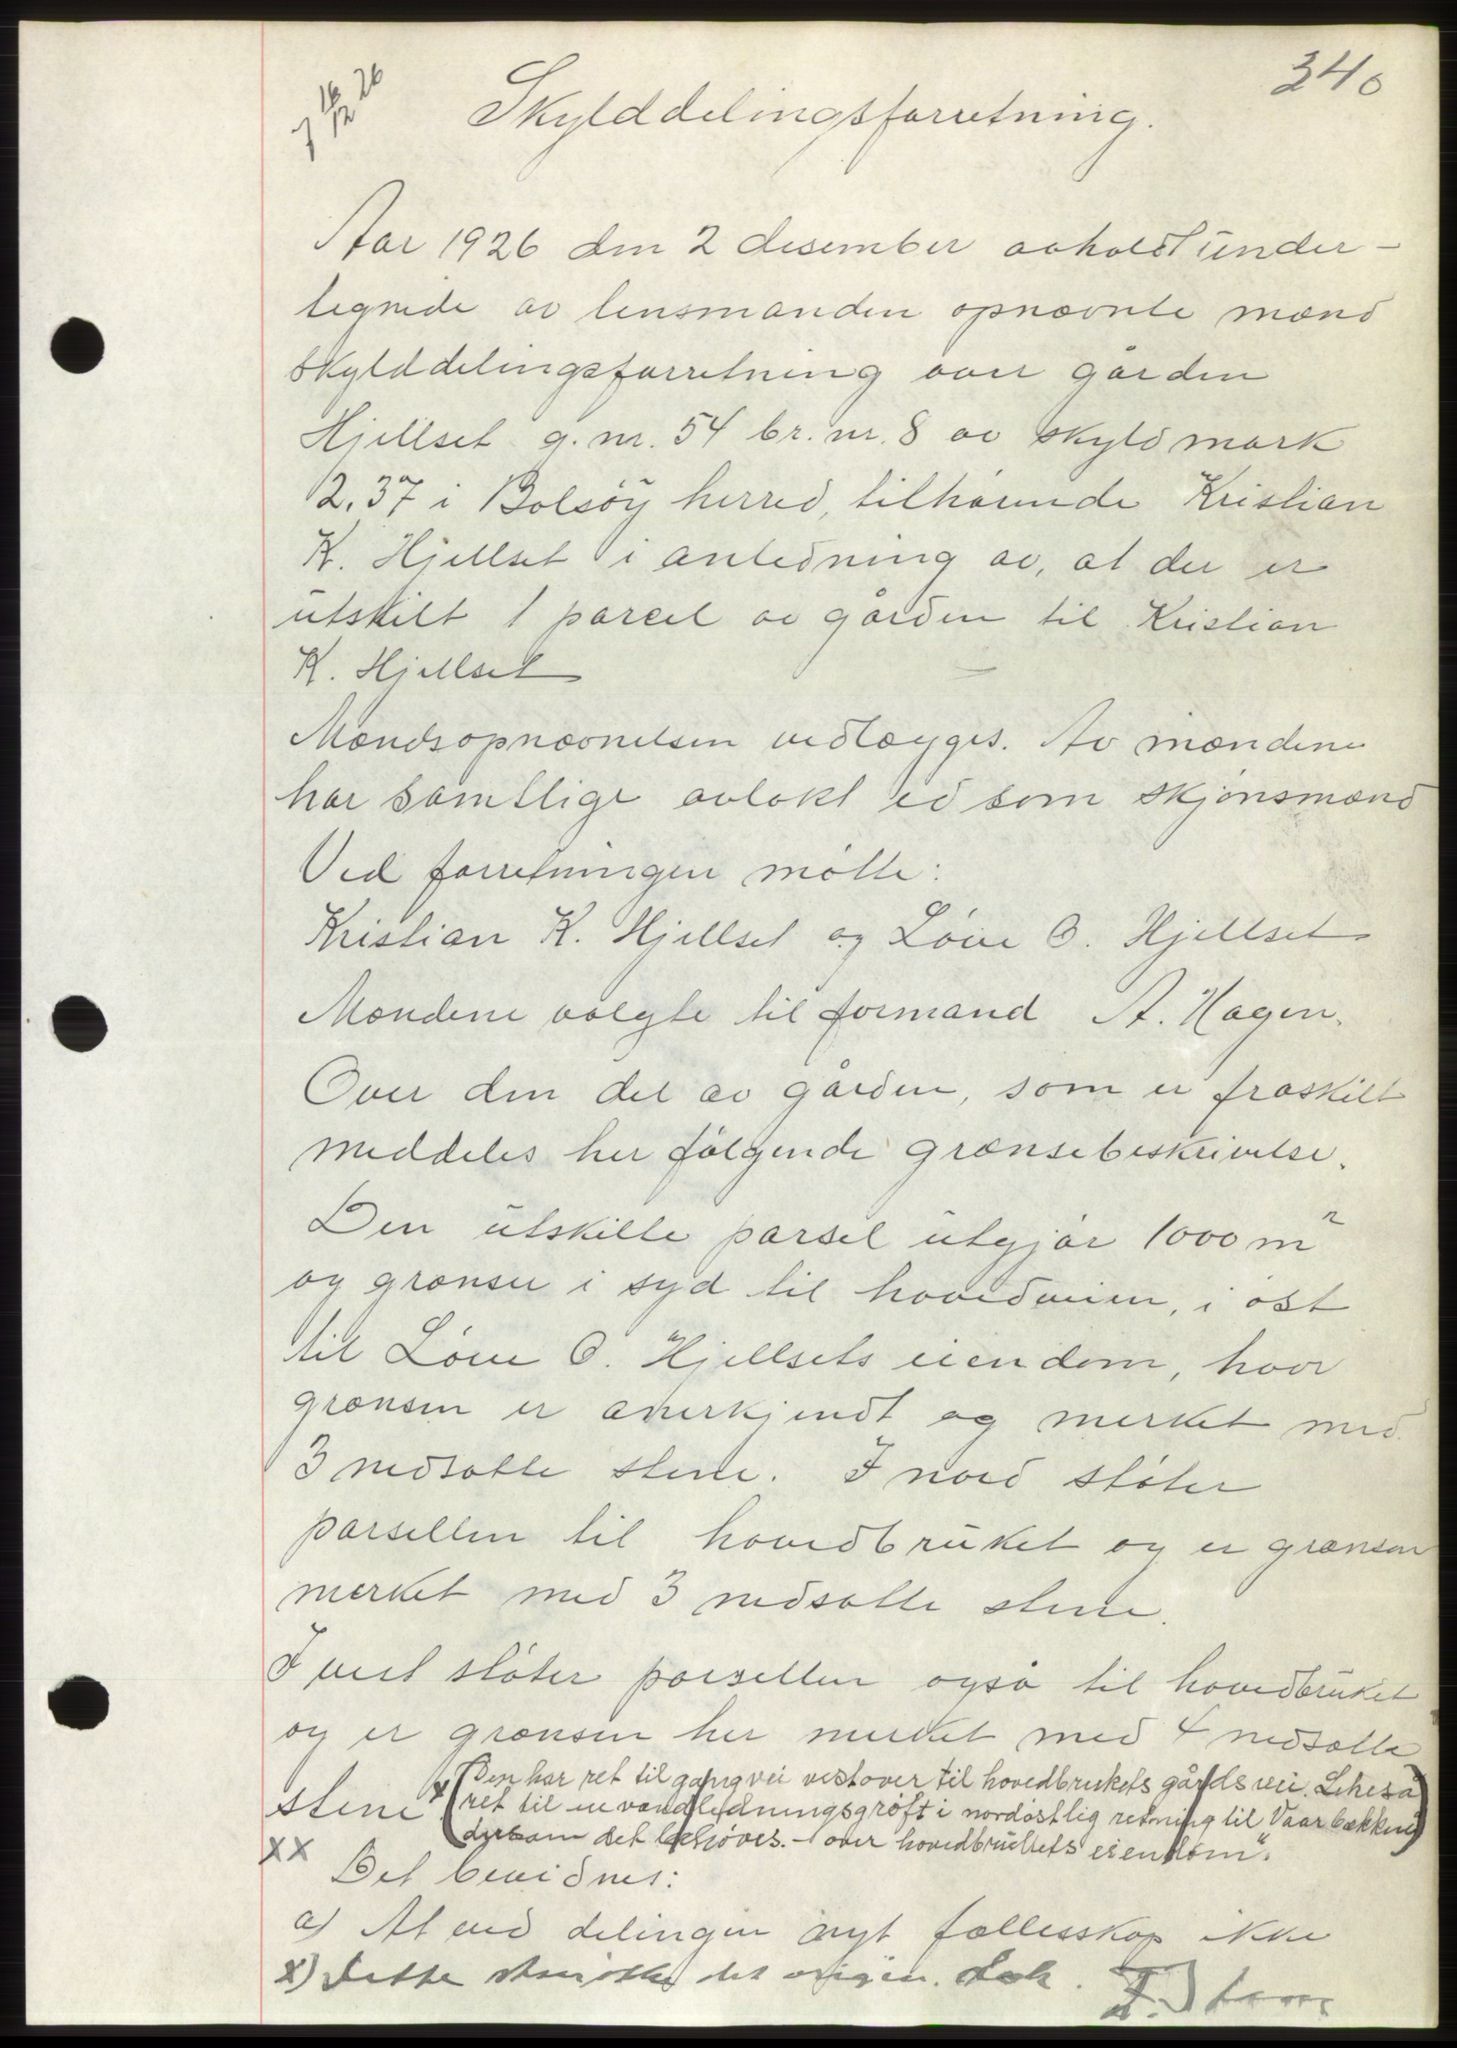 340
7 16/12 26
Skylddelingsforretning.
Aar 1926 den 2 desember avholdt under-
tegnede av lensmanden opnævnte mænd
skylddelingsforretning over gården
Hjellset g. nr. 54 br. nr. 8 av skyld mark
2.37 i Bolsöy herred, tilhørende Kristian
K. Hjellset i anledning av, at der er
utskilt 1 parcel av gården til Kristian
K. Hjellset
Mændsopnævnelsen vedlægges. Av mændene
har samtlige avlakt ed som skjönsmænd
Ved forretningen mötte:
Kristian K. Hjellset og Löve O. Hjellset
Mændene valgte til formand A. Hagen.
Over den del av gården, som er fraskilt
meddeles her fölgende grænsebeskrivelse.
Den utskilte parsel utgjör 1000 m²
og grænser i syd til hovedveien, i öst
til Löve O. Hjellsets eiendom, hvor
grænsen er anerkjendt og merket med
3 nedsatte stene. I nord stöter
parsellen til hovedbruket og er grænsen
merket med 3 nedsatte stene.
I vest stöter parsellen også til hovedbruket
og er grænsen her merket med 4 nedsatte
stene x (Den har ret til gangvei vestover til hovedbrukets gårdsvei. Likeså
ret til en vandledningsgröft i nordöstlig retning til Vaarbækken
dersom det behöves. - over hovedbrukets eiendom".)
XX
Det bevidnes:
a) At ved delingen nyt fællesskap ikke
x) Dette i origin. dok.